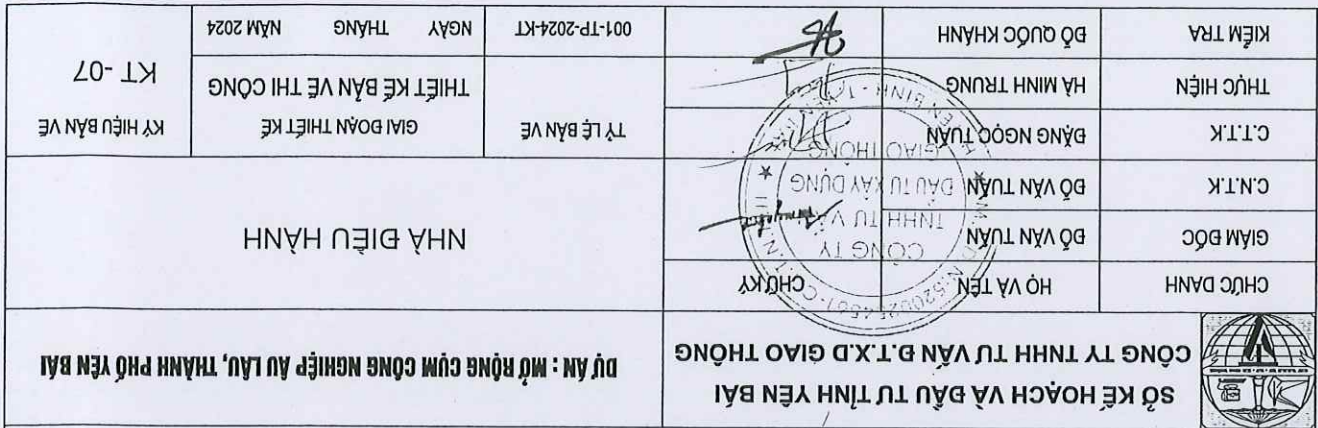 SỞ KẾ HOẠCH VÀ ĐẦU TƯ TỈNH YÊN BÁI
CÔNG TY TNHH TƯ VẤN Đ.T.X.D GIAO THÔNG
DỰ ÁN : MỞ RỘNG CỤM CÔNG NGHIỆP ÂU LÂU, THÀNH PHỐ YÊN BÁI
CHỨC DANH
HỌ VÀ TÊN
CHỮ KÝ
GIÁM ĐỐC
ĐỖ VĂN TUẤN
C.N.T.K
ĐỖ VĂN TUẤN
C.T.T.K
ĐẶNG NGỌC TUẤN
THỰC HIỆN
HÀ MINH TRUNG
KIỂM TRA
ĐỖ QUỐC KHÁNH
CÔNG TY
TNHH TƯ VẤN
ĐẦU TƯ XÂY DỰNG
GIAO THÔNG
NHÀ ĐIỀU HÀNH
TỶ LỆ BẢN VẼ
001-TP-2024-KT
GIAI ĐOẠN THIẾT KẾ
THIẾT KẾ BẢN VẼ THI CÔNG
NGÀY THÁNG NĂM 2024
KÝ HIỆU BẢN VẼ
KT - 07